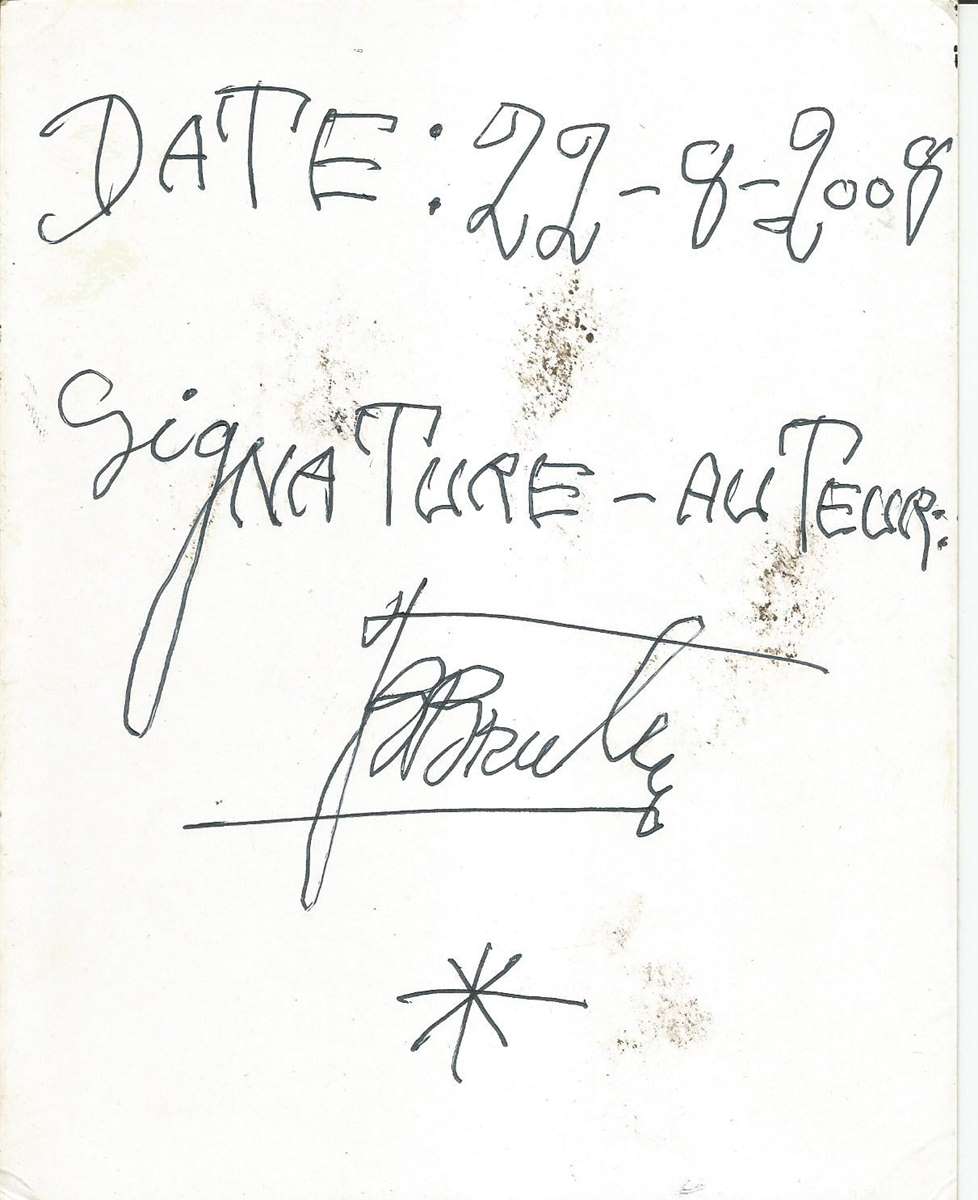 DATE: 22-8-2008
SIGNATURE-AUTEUR:
FBBruly